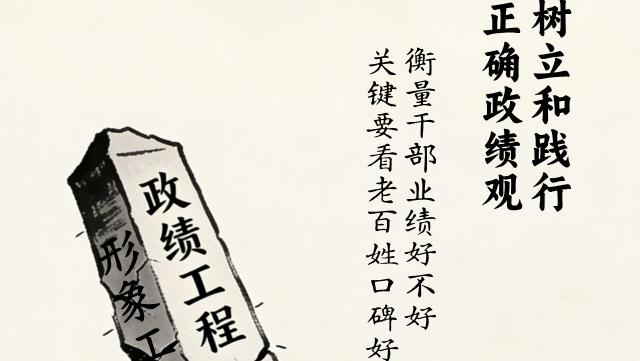 树立和践行
正确政绩观
衡量干部业绩好不好
关键要看老百姓口碑好
政绩工程
形象工